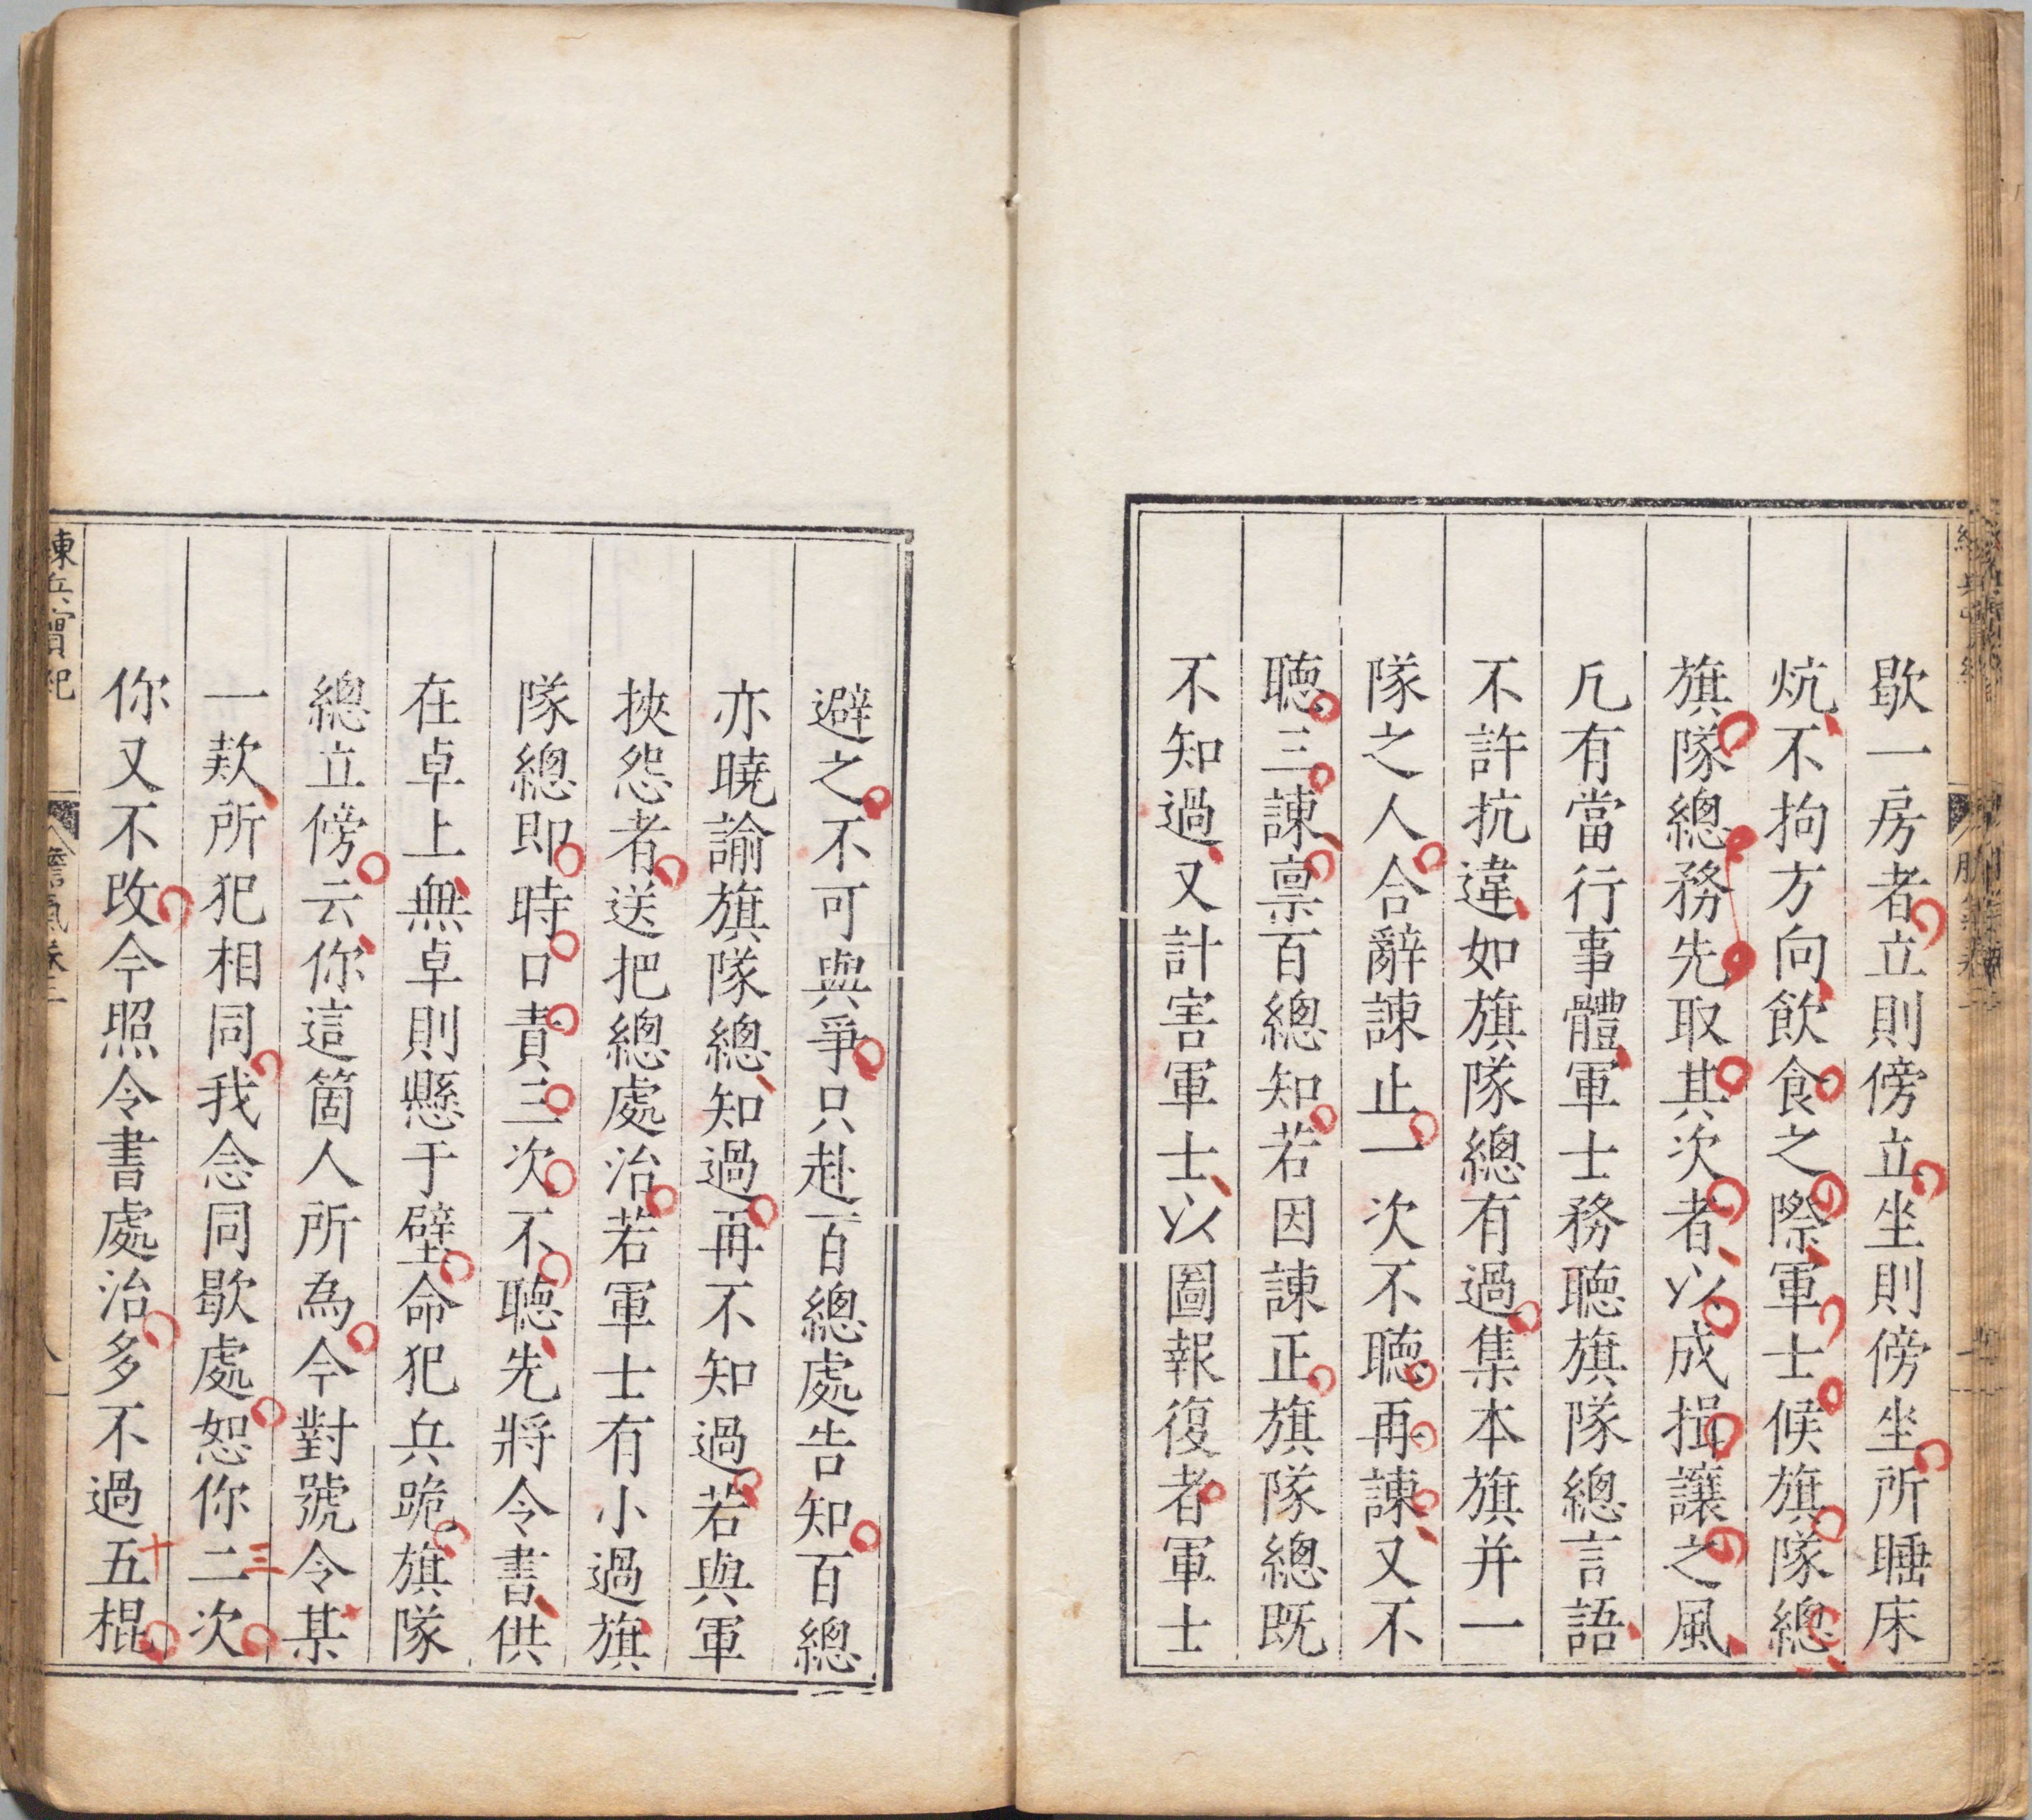 歇一房者立則傍立坐則傍坐所睡床
炕不拘方向飲食之際軍士候旗隊總
旗隊總務先取其次者以成揖讓之風
凡有當行事體軍士務聽旗隊總言語
不許抗違如旗隊總有過集本旗并一
隊之人合辭諫止一次不聽再諫又不
聽三諫禀百總知若因諫正旗隊總既
不知過又計害軍士以圖報復者軍士
避之不可與爭只赴百總處告知百總
亦曉諭旗隊總知過再不知過若與軍
挾怨者送把總處治若軍士有小過旗
隊總即時口責三次不聽先將令書供
在卓上無卓則懸于壁命犯兵跪旗隊
總立傍云你這箇人所為今對號令某
一款所犯相同我念同歇處恕你二次
三
你又不改今照令書處治多不過五棍
十
練兵實紀
膽氣卷二
八